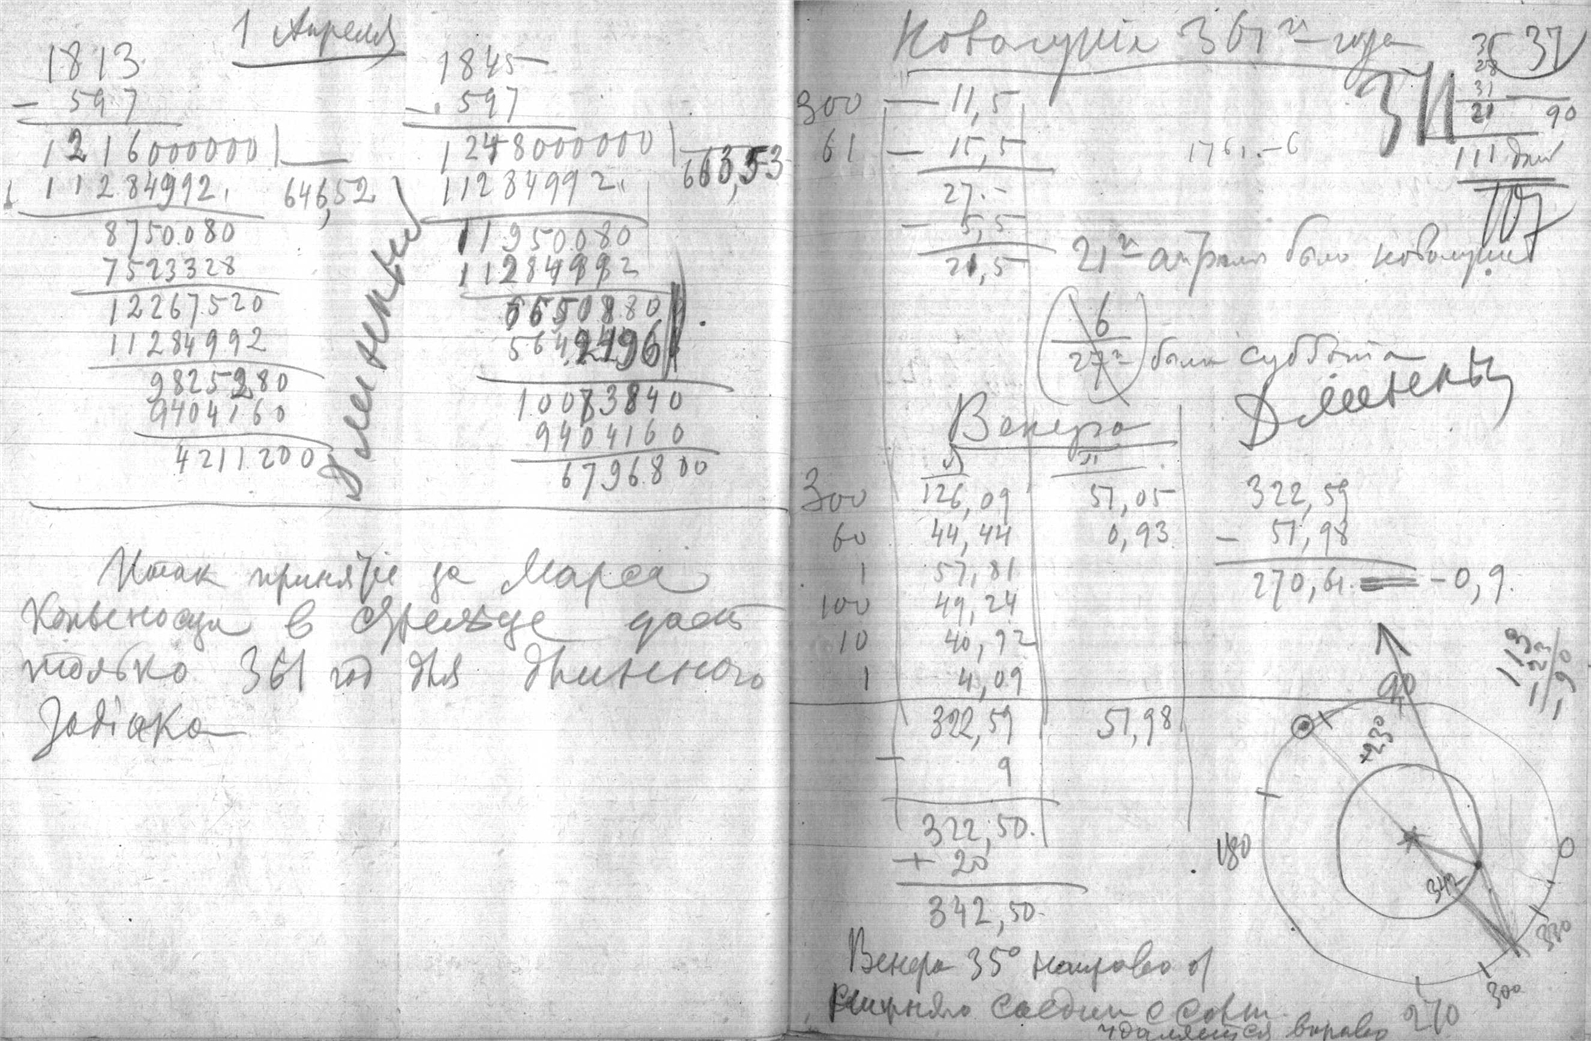 1 Апреля
1813
— 597
1216000000
11284992.
646,52
8750080
7523328
12267520
11284992
9825280
9404160
4211200
1845
— 597
1248000000
11284992.
663,53
11950080
11284992
6650880
10083840
9404160
6796800
Длиненны
Итак принятіе за Марса
Копьеносца в Стрельце дает
только 361 год для
Зодіака
Новолуніе 361го года
300 — 11,5
61 — 15,5
27.-
— 5,5
21,5
1761.-6
37
31
21
90
111 дней
107
311
21го апреля было новолуніе
6
27го
была суббота
Длиненны
Венера
300 126,09 51,05
60 44,44 0,93
1 57,81
100 49,24
10 40,92
1 4,09
322,59 51,98
— 9
322,50.
+ 20
342,50.
322,59
— 51,98
270,61. = -0,9.
113
-23
-90
90
+230
180
0
342
330
300
270
Венера 35° направо от
нижняго соедин с Солн.
удаляется вправо